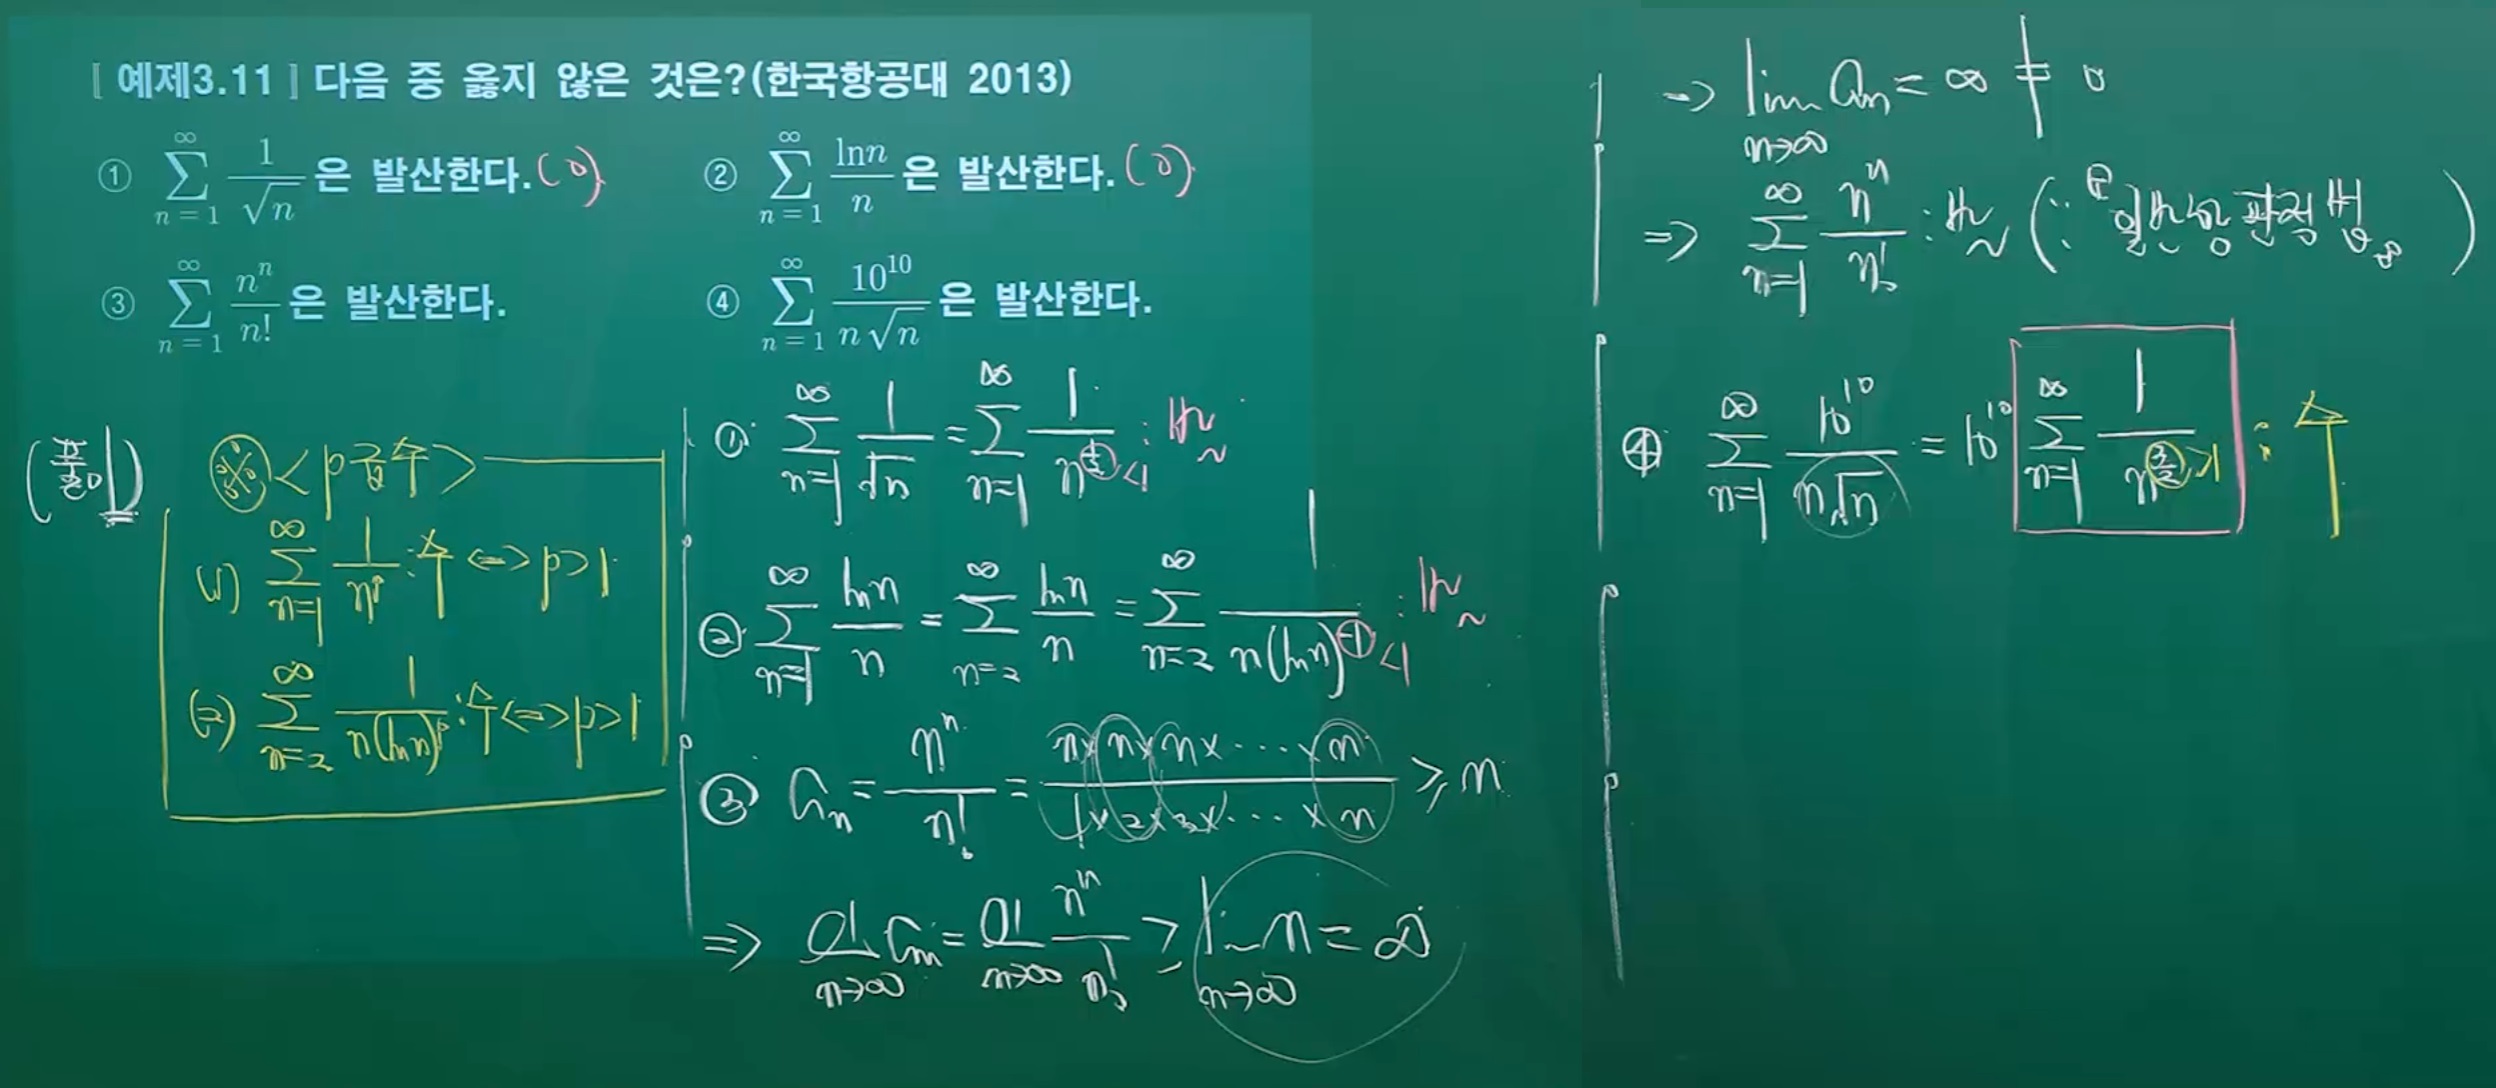 [ 예제3.11 ] 다음 중 옳지 않은 것은?(한국항공대 2013)
① \sum_{n=1}^{∞} \frac{1}{\sqrt{n}} 은 발산한다. (o)
② \sum_{n=1}^{∞} \frac{\ln n}{n} 은 발산한다. (o)
③ \sum_{n=1}^{∞} \frac{n^n}{n!} 은 발산한다.
④ \sum_{n=1}^{∞} \frac{10^{10}}{n\sqrt{n}} 은 발산한다.
(풀이)
※ <p급수>
(1) \sum_{n=1}^{∞} \frac{1}{n^p} : 수 <=> p>1
(2) \sum_{n=2}^{∞} \frac{1}{n(\ln n)^p} : 수 <=> p>1
① \sum_{n=1}^{∞} \frac{1}{\sqrt{n}} = \sum_{n=1}^{∞} \frac{1}{n^{\frac{1}{2}}} <1 : 발
② \sum_{n=1}^{∞} \frac{\ln n}{n} = \sum_{n=2}^{∞} \frac{\ln n}{n} = \sum_{n=2}^{∞} \frac{1}{n(\ln n)^{-1}} <1 : 발
③ a_n = \frac{n^n}{n!} = \frac{n×n×n×····×n}{1×2×3×····×n} ≥ n
=> \lim_{n→∞} a_n = \lim_{n→∞} \frac{n^n}{n!} ≥ \lim_{n→∞} n = ∞
=> \lim_{n→∞} a_n = ∞ ≠ 0
=> \sum_{n=1}^{∞} \frac{n^n}{n!} : 발 (∵ 일반항판정법)
④ \sum_{n=1}^{∞} \frac{10^{10}}{n\sqrt{n}} = 10^{10} \sum_{n=1}^{∞} \frac{1}{n^{\frac{3}{2}}} >1 : 수